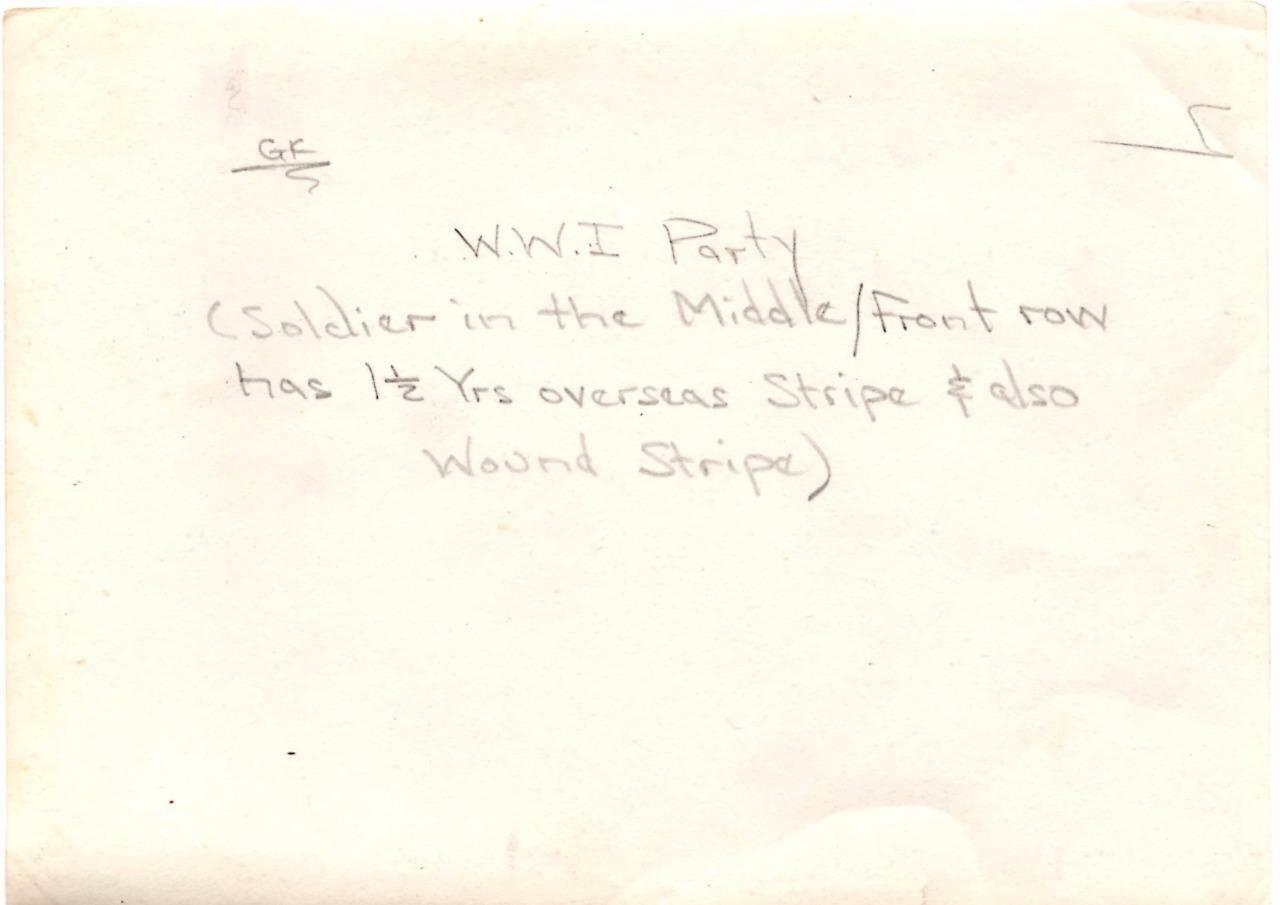 GF
W.W.I Party
(Soldier in the Middle/Front row
has 1½ Yrs overseas Stripe & also
Wound Stripe)